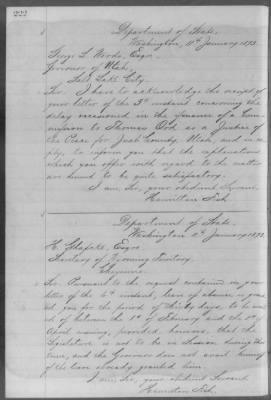 222
Department of State.
Washington, 11th January 1873.
George L. Woods, Esqre
Governor of Utah,
Salt Lake City.
Sir: I have to acknowledge the receipt of
your letter of the 3d instant concerning the
delay occasioned in the issuance of a Com-
mission to Thomas Ord as a Justice of
the Peace for Juab County, Utah, and in re-
ply, to inform you that the explanations
which you offer with regard to the matter
are found to be quite satisfactory.
I am, Sir, your obedient Servant,
Hamilton Fish
Department of State.
Washington 11th January 1873.
H. Glafcke, Esqre
Secretary of Wyoming Territory.
Cheyenne.
Sir: Pursuant to the request contained in your
letter of the 4th instant, leave of absence is grant-
ed you for the period of thirty days, to be used
between the 1st of February and the 1st of
April ensuing, provided, however, that the
Legislature is not to be in Session during this
time, and the Governor does not avail himself
of the leave already granted him.
I am, Sir, your obedient Servant
Hamilton Fish